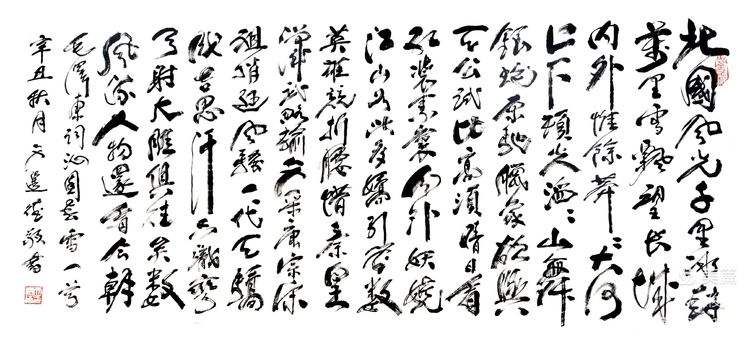 北國風光千里冰封
萬里雪飄望長城
内外惟餘莽〻大河
上下頓失滔〻山舞
銀蛇原馳臘象欲與
天公試比高須晴日看
紅裝素裹分外妖嬈
江山如此多嬌引無數
英雄競折腰惜秦皇
漢武略輸文采唐宗宋
祖稍遜風騷一代天驕
成吉思汗只識彎
弓射大雕俱往矣數
風流人物還看今朝
毛澤東詞沁園春雪一首
辛丑秋月